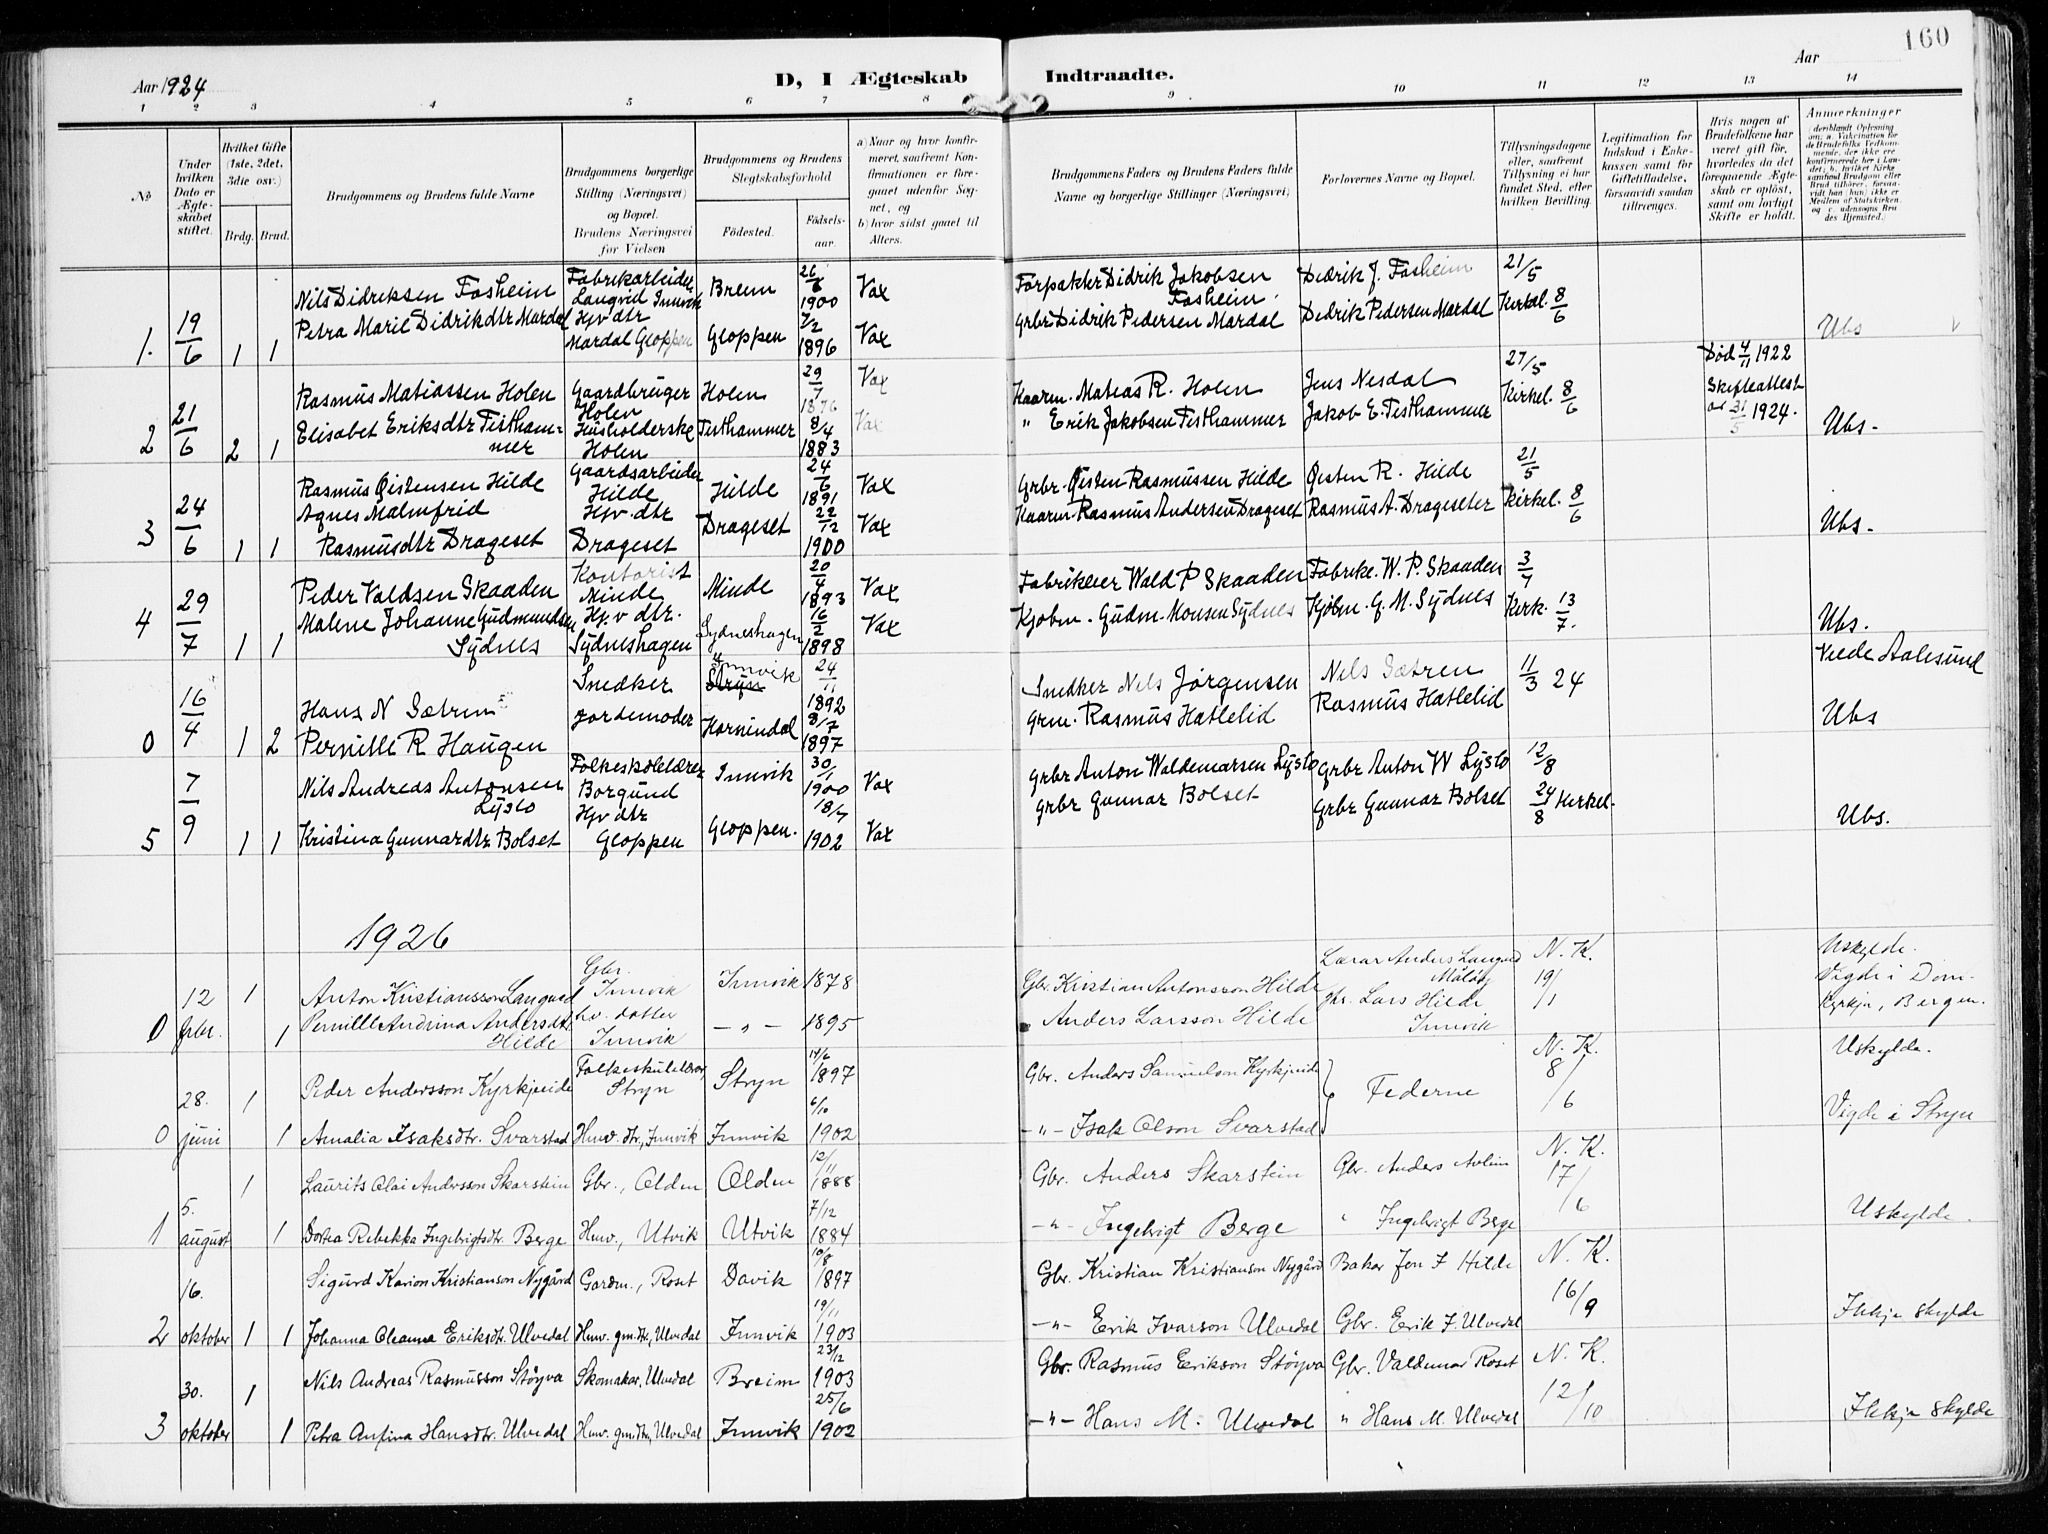 160
Aar 1924
D, I Ægteskab Indtraadte.
Aar
1 2 3 4 5 6 7 8 9 10 11 12 13 14
No
Under hvilken Dato er Ægteskabet stiftet.
Hvilket Gifte (1ste, 2det, 3die osv.)
Brdg. Brud.
Brudgommens og Brudens fulde Navne
Brudgommens borgerlige Stilling (Næringsvei) og Bopæl. Brudens Næringsvei før Vielsen
Brudgommens og Brudens Slegtskabsforhold
Födested. Födselsaar.
a) Naar og hvor konfirmeret, saafremt Konfirmationen er foregaaet udenfor Sognet, og
b) hvor sidst gaaet til Alters.
Brudgommens Faders og Brudens Faders fulde Navne og borgerlige Stillinger (Næringsvei)
Forlovernes Navne og Bopæl.
Tillysningsdagene eller, saafremt Tillysning ei har fundet Sted, efter hvilken Bevilling.
Legitimation for Indskud i Enkekassen samt for Giftetilladelse, forsaavidt saadan tiltrænges.
Hvis nogen af Brudefolkene har været gift før, hvorledes da det foregaaende Ægteskab er opløst, samt om lovligt Skifte er holdt.
Anmerkninger
1. 19/6 1 1
Nils Didriksen Fosheim Fabrikarbeider Langvid Innvik Breim 26/6 1900 Vax Forpakter Didrik Jakobsen Fosheim Didrik J. Fosheim 21/5
Petra Marie Didrikdtr Mardal Hjv dtr Mardal Gloppen Gloppen 7/2 1896 Vax Grbr Didrik Pedersen Mardal Dedrik Pedersen Mardal Kirkel. 8/6 Ubs
2 21/6 2 1
Rasmus Matiassen Holen Gaardbruger Holen Holen 29/7 1876 Vax Kaarm. Matias R. Holen Jens Nesdal 27/5 Død 4/11 1922
Elisabet Eriksdtr Tisthammer Husholderske Holen Tisthammer 8/4 1883 Vax " Erik Jakobsen Tisthammer Jakob E. Tisthammer Kirkel. 8/6 Skifteattest av 31/5 1924. Ubs.
3 24/6 1 1
Rasmus Øistensen Hilde Gaardsarbeider Hilde Hilde 24/6 1891 Vax Grbr. Øisten Rasmussen Hilde Øisten R. Hilde 21/5
Agnes Malmfrid Rasmusdtr Drageset Hjv. dtr Drageset Drageset 22/12 1900 Vax Kaarm. Rasmus Andersen Drageset Rasmus A. Drageseter Kirkel. 8/6 Ubs.
4 29/7 1 1
Peder Valdsen Skaaden Kontorist Minde Minde 20/4 1893 Vax Fabrikeier Wald P Skaaden Fabrike. W. P. Skaaden 3/7
Malene Johanne Gudmundsen Sydnes Hjv dtr. Sydneshagen Sydneshagen 16/2 1898 Vax Kjøbm. Gudm. Monsen Sydnes Kjøbm. G. M. Sydnes Kirk. 13/7. Ubs.
0 16/4 1 2
Hans N Sætren Snedker Innvik 24/11 1892 Snedker Nils Jørgensen Nils Sætren 11/3 24 Viede Aalesund
Pernille R Haugen Jordemoder Hornindal 8/7 1897 Grm. Rasmus Hatlelid Rasmus Hatlelid Ubs
5 7/9 1 1
Nils Andreas Antonsen Lyslo Folkeskolelærer Borgund Innvik 30/1 1900 Vax Grbr Anton Waldemarsen Lyslo Grbr Anton W Lyslo 12/8
Kristina Gunnardtr Bolset Hjv dtr Gloppen Gloppen. 18/7 1902 Vax Grbr Gunnar Bolset Grbr Gunnar Bolset 24/8 Kirkel. Ubs.
1926
0 12 febr. 1 1
Anton Kristiansson Langvad Gbr. Innvik Innvik 1878 Gbr. Kristian Antonsson Hilde Lærar Anders Langvad Måløy N. K. 19/1 Uskylde.
Pernille Andrina Andersdtr Hilde hv. dotter Innvik -"- 1895 Anders Larsson Hilde Gbr. Lars Hilde Innvik Vigde i Domkyrkja, Bergen.
0 28. juni 1 1
Peder Andersson Kyrkjeide Folkeskulelærar, Stryn Stryn 14/6 1897 Gbr. Anders Samuelson Kyrkjeide Federne N. K. 8/6 Uskylde.
Amalia Isaksdtr. Svarstad Husv. dtr, Innvik Innvik 6/10 1902 -"- Isak Olson Svarstad Vigde i Stryn
1 5. august 1 1
Laurits Olai Andersson Skarstein Gbr., Olden Olden 12/11 1888 Gbr. Anders Skarstein Gbr. Anders N. K. 17/6
Dortea Rebekka Ingebrigtsdtr. Berge Husv., Utvik Utvik 7/12 1884 -"- Ingebrigt Berge " Ingebrigt Berge Uskylde.
2 16. oktober 1 1
Sigurd Karion Kristianson Nygård Gardm., Roset Davik 10/8 1897 Gbr. Kristian Kristianson Nygård Bakar Jon J Hilde N. K. 16/9
Johanna Oleanna Eriksdtr. Ulvedal Husv. gmdtr, Ulvedal Innvik 19/11 1903 -"- Erik Ivarson Ulvedal Gbr. Erik I. Ulvedal Ikkje skylde
3 30. oktober 1 1
Nils Andreas Rasmusson Støyva Skomakar, Ulvedal Breim 23/12 1903 Gbr. Rasmus Erikson Støyva Gbr. Valdemar Roset N. K. 12/10
Petra Anfina Hansdtr. Ulvedal Husv. gmdtr, Ulvedal Innvik 25/6 1902 -"- Hans M. Ulvedal " Hans M. Ulvedal Ikkje skylde